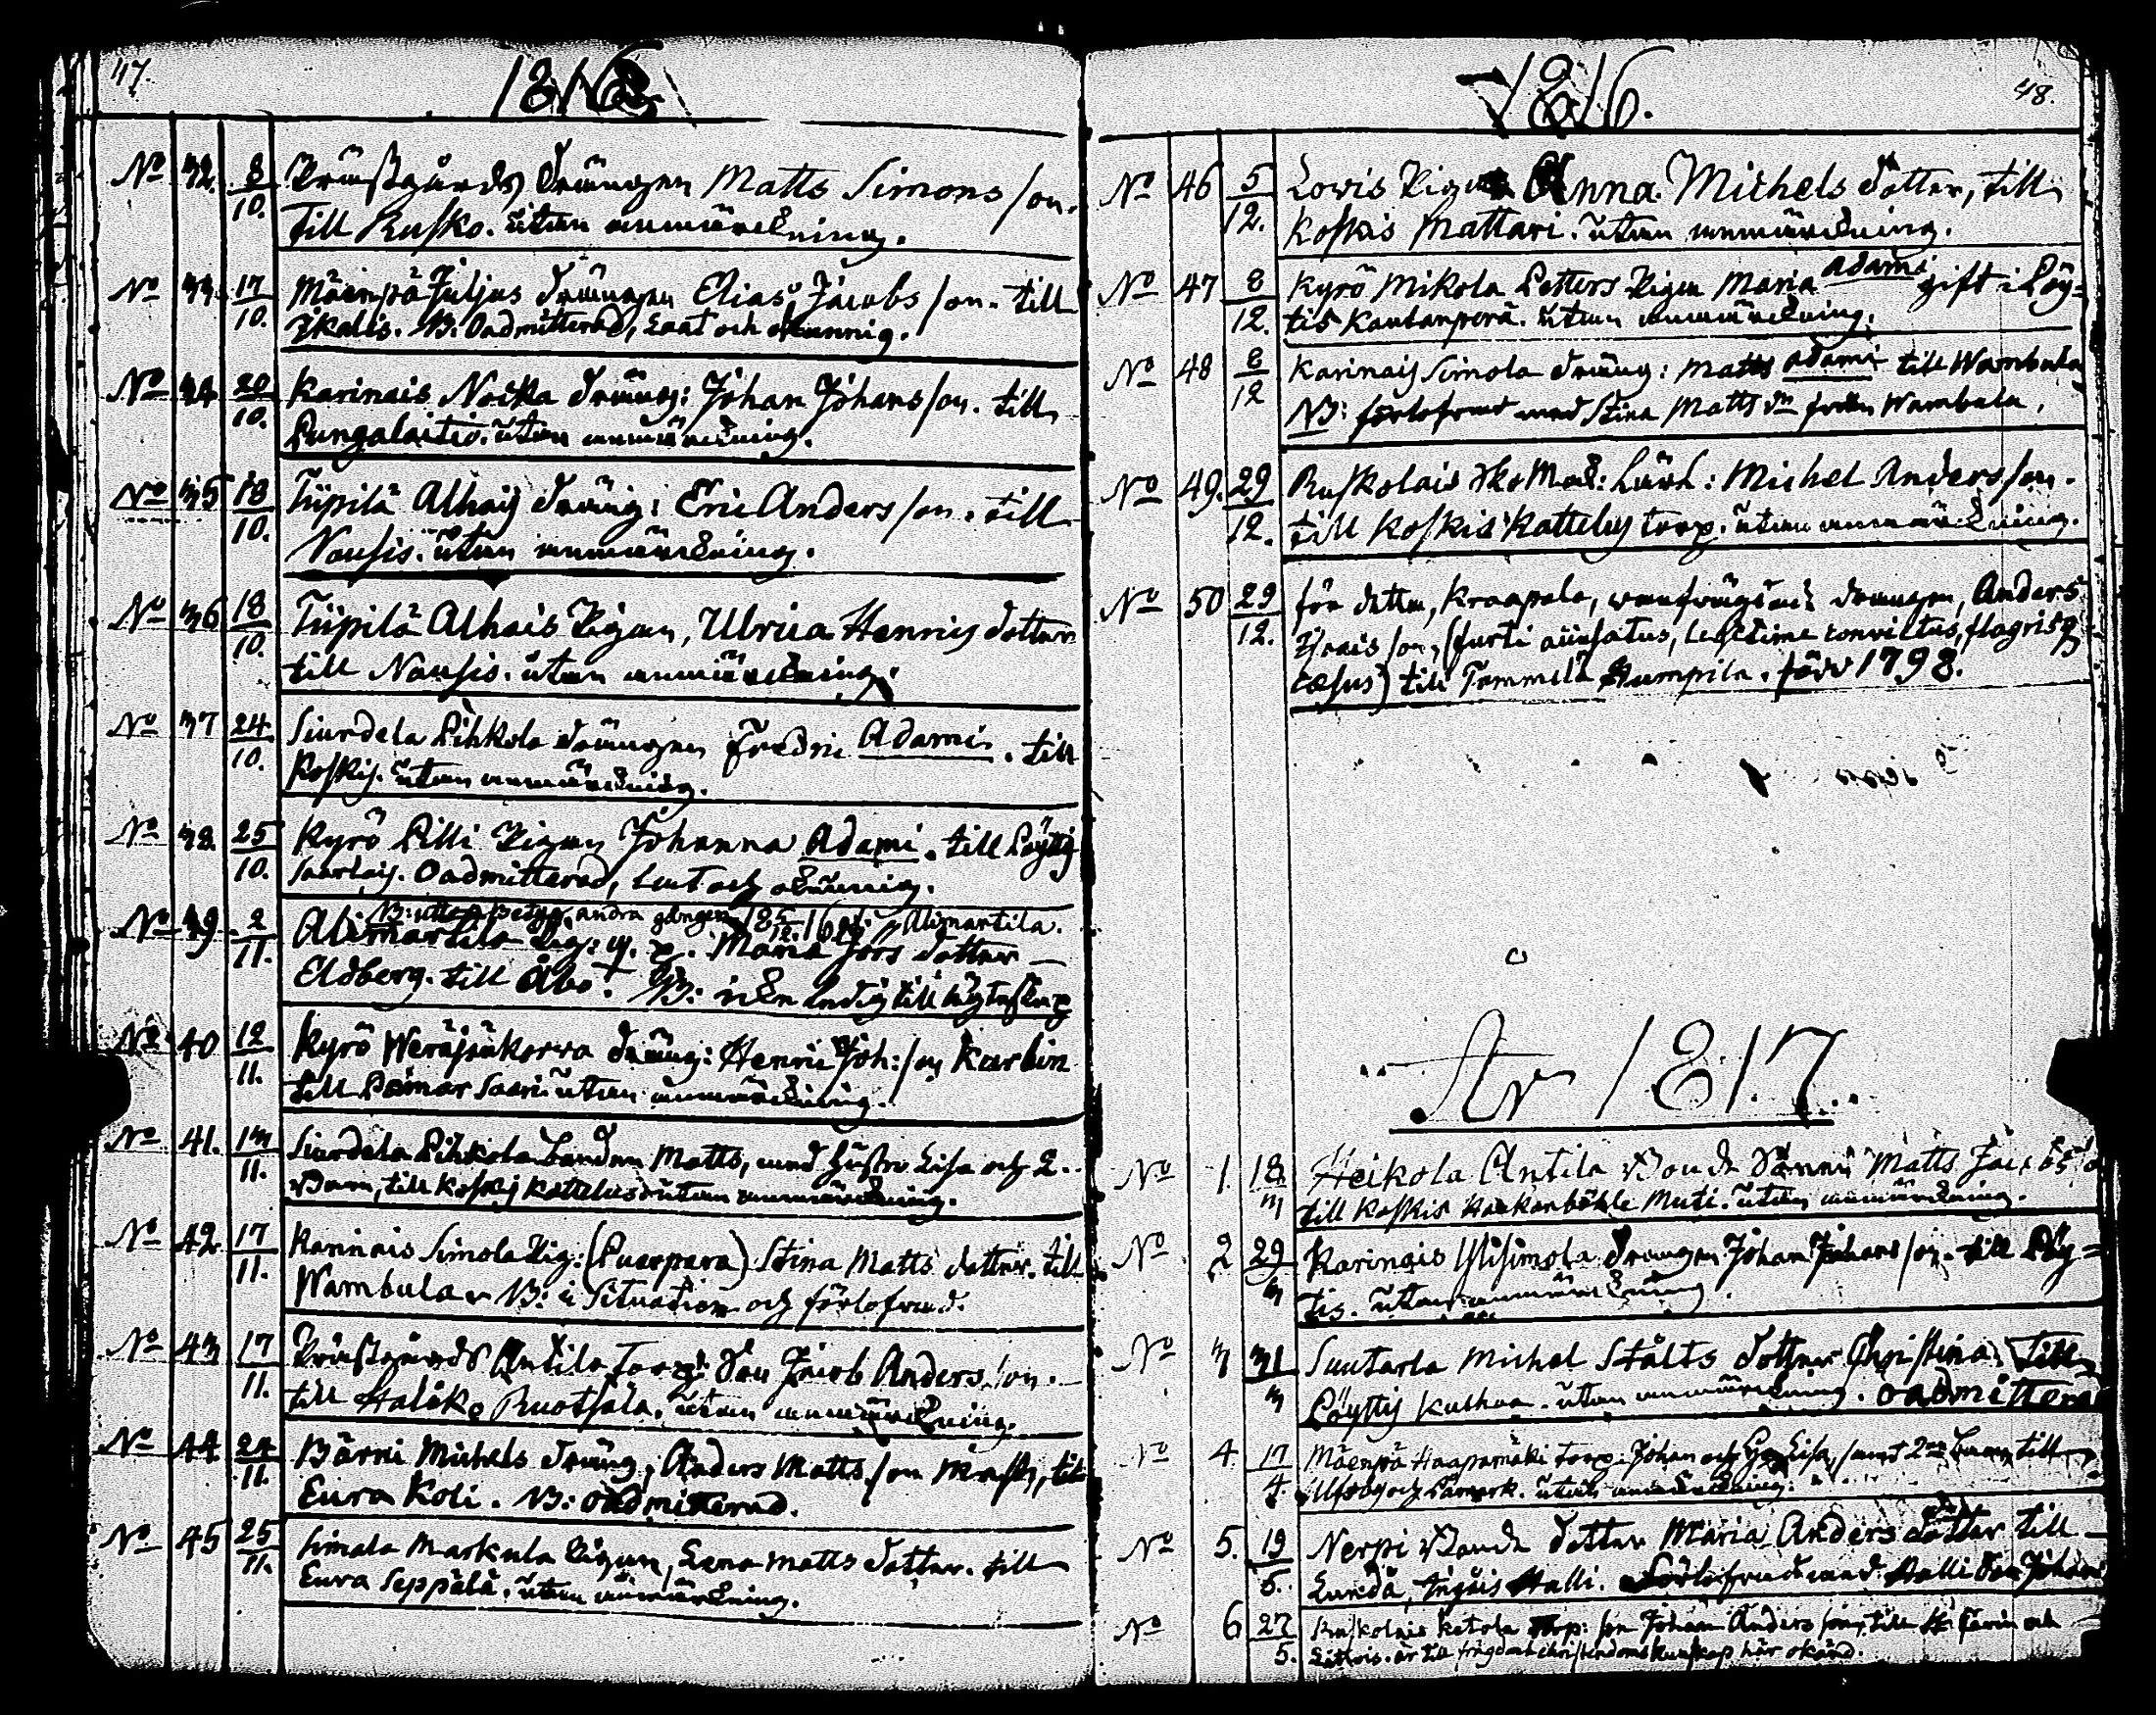 47.
1816
No 32. 8/10. Prästgårds Drängen Matts Simons son.
till Rusko. utan anmärckning.
No 33 17/10. Mäenpä Juljus Drängen Elias Jacobs son. till
Ikalis. NB. Oadmitterad, Laat och okunnig.
No 34 20/10. Karinais Nocka Dräng: Johan Johans son. till
Pungalaitio. utan anmärckning.
No 35 18/10. Tiipilä Alhais Dräng: Eric Anders son. till
Nousis. utan anmärckning.
No 36 18/10. Tiipilä Alhais Pigan, Ulrica Henrics dotter
till Nousis. utan anmärckning.
No 37 24/10. Siurdela Pihkola Drängen Fredric Adami. till
Koskis. utan anmärckning.
No 38. 25/10. Kyrö Pilli Pigan Johanna Adami. till Löytis
Oadmitterad, Lat och okunnig.
NB: andra gången Alimartila.
No 39 2/11. Alimartila Pig: Maria Jörs dotter
Eldberg. till Åbo. NB: ledig till ägtenskap
No 40 12/11. Kyrö Weräjänkorva Dräng: Henric Joh: son Karlin
till Pemar Saari utan anmärckning.
No 41. 13/11. Siurdela Pihkola Landbn Matts, med hustru Lisa och 2.
Barn, till Koskis Kattelus utan anmärckning.
No 42. 17/11. Karinais Simola Pig: (Puerpera) Stina Matts dotter. till
Wambula. NB: i Situation och förlofvad.
No 43 17/11. Prästgårds Antila Torp: Son Jacob Anders son.
till Haliko Ruotsala. utan anmärckning.
No 44. 24/11. Bärni Michels Dräng, Anders Matts son till
Eura Koli. NB: oadmitterad.
No 45 25/11. Simala Markula Pigan, Lena Matts dotter. till
Eura Seppälä. utan anmärckning.
1816.
48.
No 46 5/12. Lovis Pigan Anna Michels dotter, till
Koskis Mattari. utan anmärckning.
No 47 8/12. Kyrö Mikola Petters Pigan Maria Adami gift i Löy=
tis Kautanperä. utan anmärckning.
No 48 8/12 Karinais Simola Dräng: Matts Adami till Wambula
NB: förlofvad med Stina Matts dr från Wambula.
No 49. 29/12. Ruskolais Michel Anders son.
till Koskis Kattelus torp. utan anmärckning.
No 50 29/12. för detta, Kraapala, Drängen, Anders
Isaacs son, (furti accusatus, legitime convictus, flagrisq
cæsus) till Tammela Humpila. född 1798.
År 1817.
No 1. 18/3 Heikola Antila Bonde Sonen Matts Jacobs
till Koskis Hankanböhle Muti. utan anmärckning.
No 2 29/3 Karinais Ylisimola Drängen Johan Johans son. till Löy=
tis. utan anmärckning.
No 3 31/3 Suutarla Michel Stålts dotter Christina. till
Löyttis Kulhua. utan anmärckning. oadmitterad
No 4. 17/4. Mäenpä Haapamäki torp: Johan och Lisa, samt 2ne barn, till
Ulfsby och utan anmärckning.
No 5. 19/5. Nerpi Bonde dotter Maria Anders dotter till
Lundå, Ingois Halli. förlofvad med Halli Son Johan
No 6 27/5. Ruskolais Ketola torp: son Johan Anders son, till St. Karin och
Littois. är till frägd och christendoms kunskap här okänd.